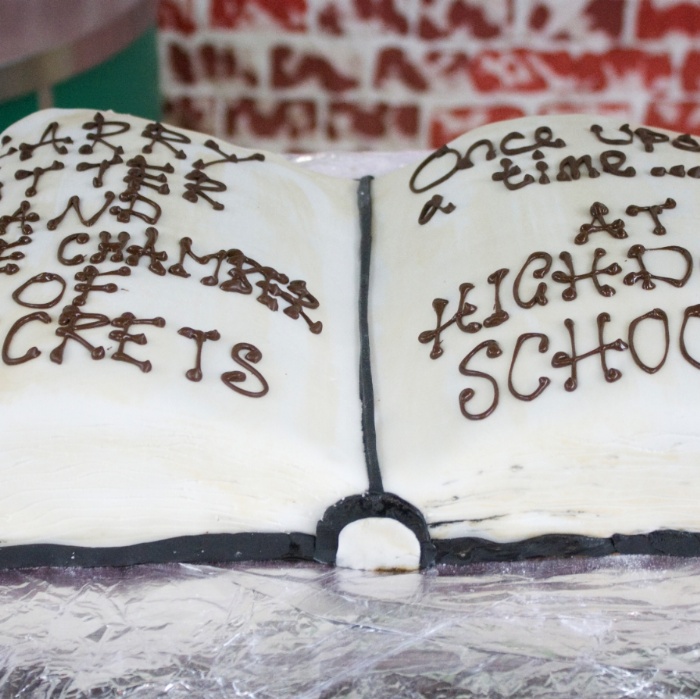 ARRY
TTER
AND
E CHAMBER
OF
CRETS
Once upo
a time ....
AT
HIGH-D
SCHOO